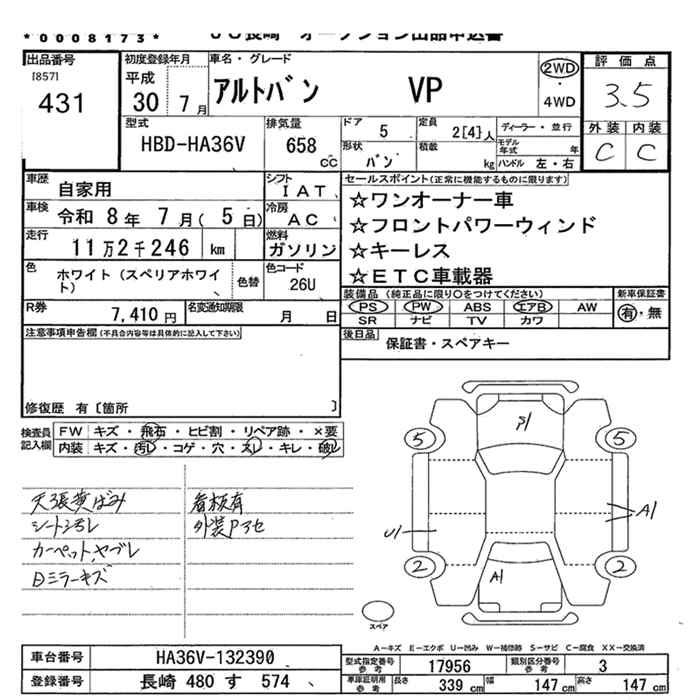 *0008173*
JU長崎 オークション出品申込書
出品番号
[857]
431
初度登録年月
平成
30 7月
車名・グレード
アルトバン VP
2WD
・
4WD
評価点
3.5
外装 内装
C C
型式
HBD-HA36V
排気量
658 cc
ドア 5
定員 2[4]人
ディーラー・並行
形状 バン
積載 kg
モデル年式 年
ハンドル 左・右
車歴 自家用
シフト IAT
車検 令和 8年 7月( 5日)
冷房 AC
走行 11万2千246 km
燃料 ガソリン
色 ホワイト(スペリアホワイト)
色替
色コード 26U
R券 7,410円
名変通知期限 月 日
セールスポイント(正常に機能するものに限ります)
☆ワンオーナー車
☆フロントパワーウィンド
☆キーレス
☆ETC車載器
装備品(純正品に限り○をつけてください)
新車保証書
PS PW ABS エアB AW
SR ナビ TV カワ
有・無
後日品 保証書・スペアキー
注意事項申告欄(不具合内容等は具体的に記入して下さい)
修復歴 有〔箇所 〕
検査員記入欄
FW キズ・飛石・ヒビ割・リペア跡・×要
内装 キズ・汚レ・コゲ・穴・スレ・キレ・破レ
天張黄ばみ
シート汚レ
カーペット、ヤブレ
Dミラーキズ
看板有
外装Pアセ
5 5
A1
U1
2 2
A1
スペア
A-キズ E-エクボ U-凹み W-補修跡 S-サビ C-腐食 XX-交換済
車台番号 HA36V-132390
登録番号 長崎 480 す 574
型式指定番号 参考 17956
類別区分番号 参考 3
車庫証明用 参考
長さ 339 cm
幅 147 cm
高さ 147 cm